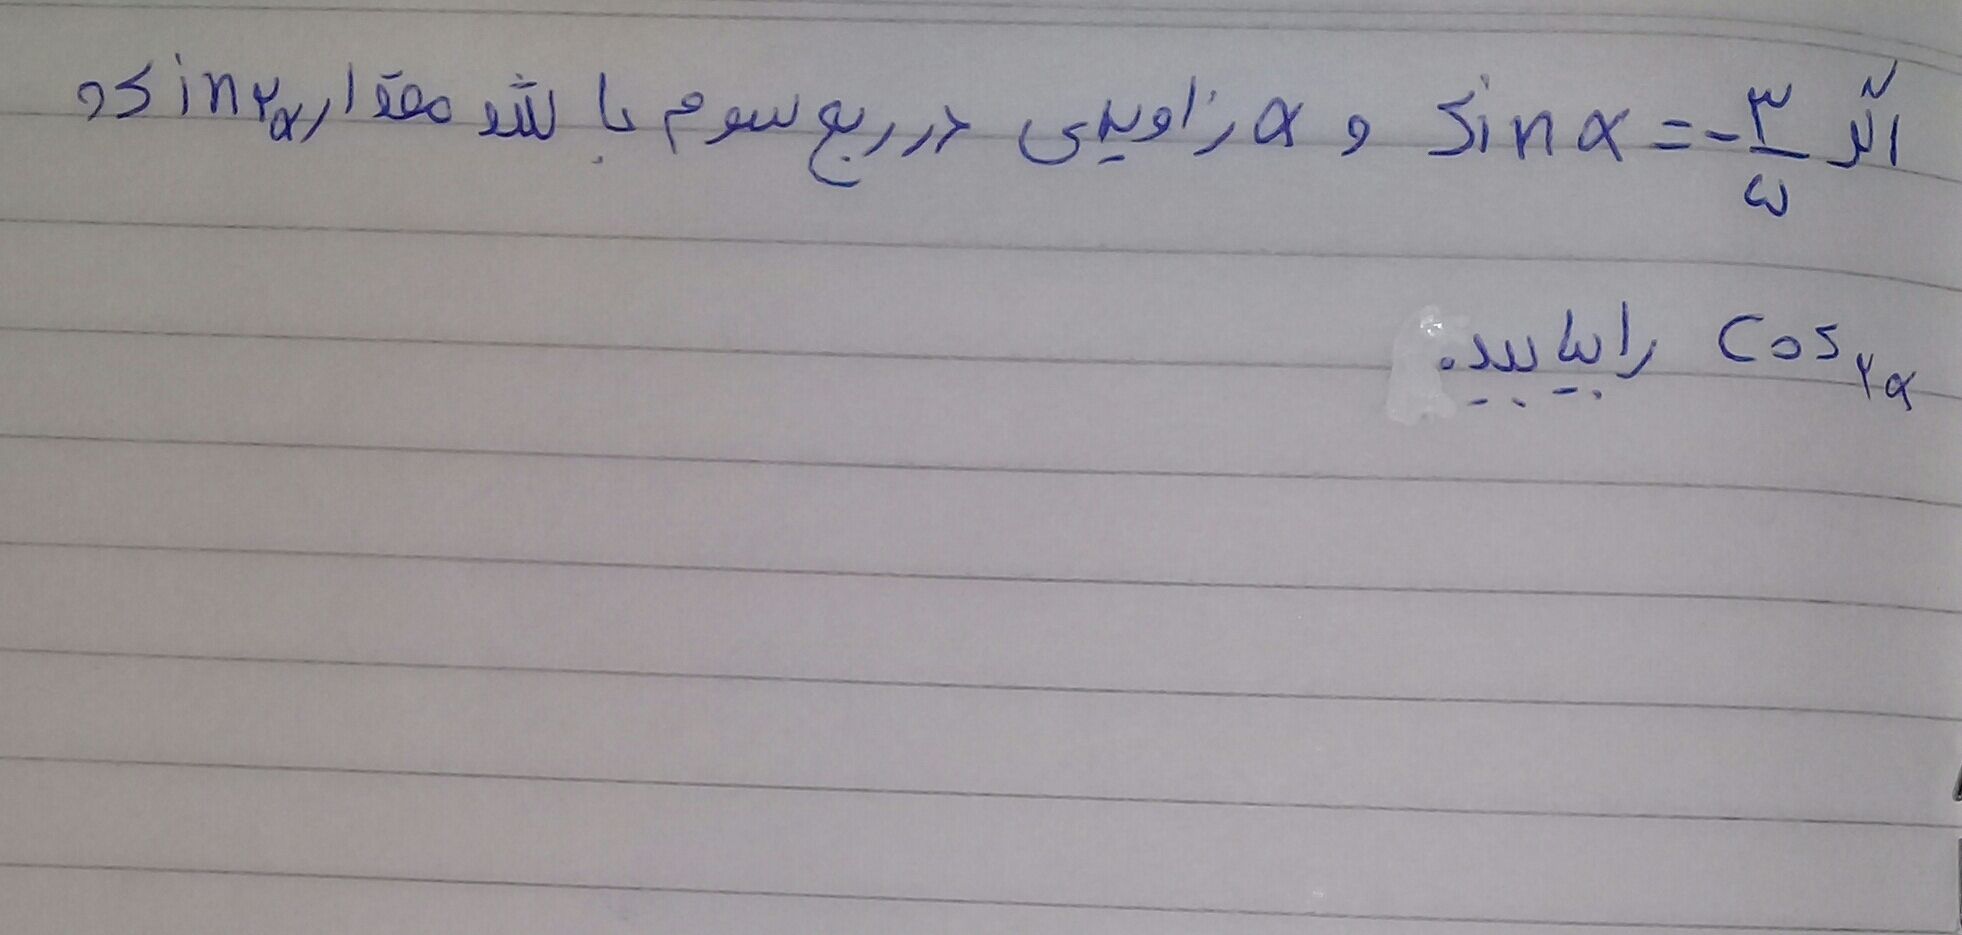 اگر sinα = -۳/۵ و α زاویه‌ی در ربع سوم باشد مقدار sin۲α و
cos۲α را بیابید.